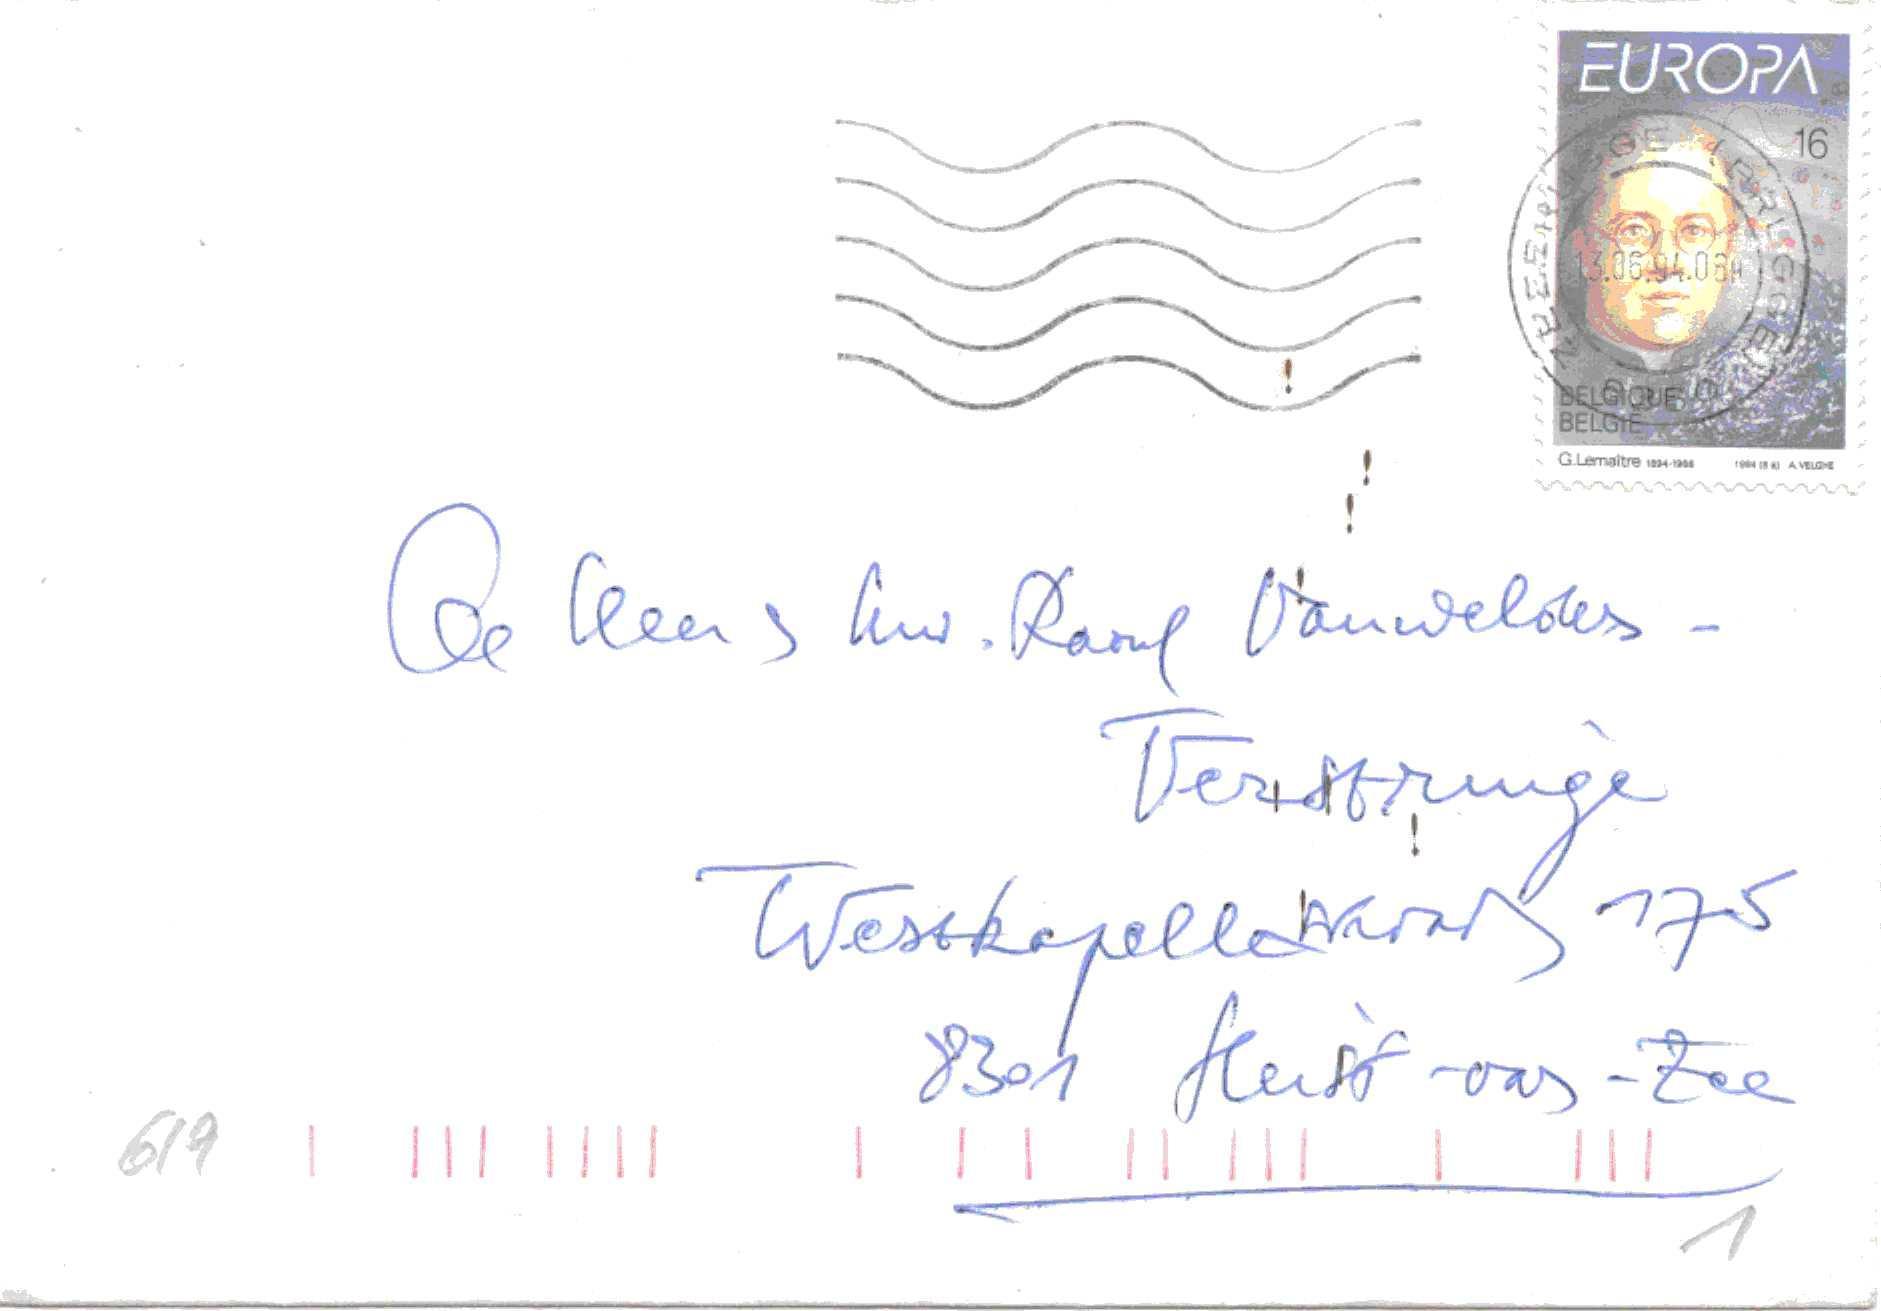 EUROPA
16
13.06.94.06H
BELGIQUE
BELGIË
G.Lemaître 1894-1966 1994 (8 k) A. VELGHE
De Heer & Mw. Raoul Vanwelden-
Verstringe
Westkapellestraat 175
8301 Heist-aan-Zee
619
1